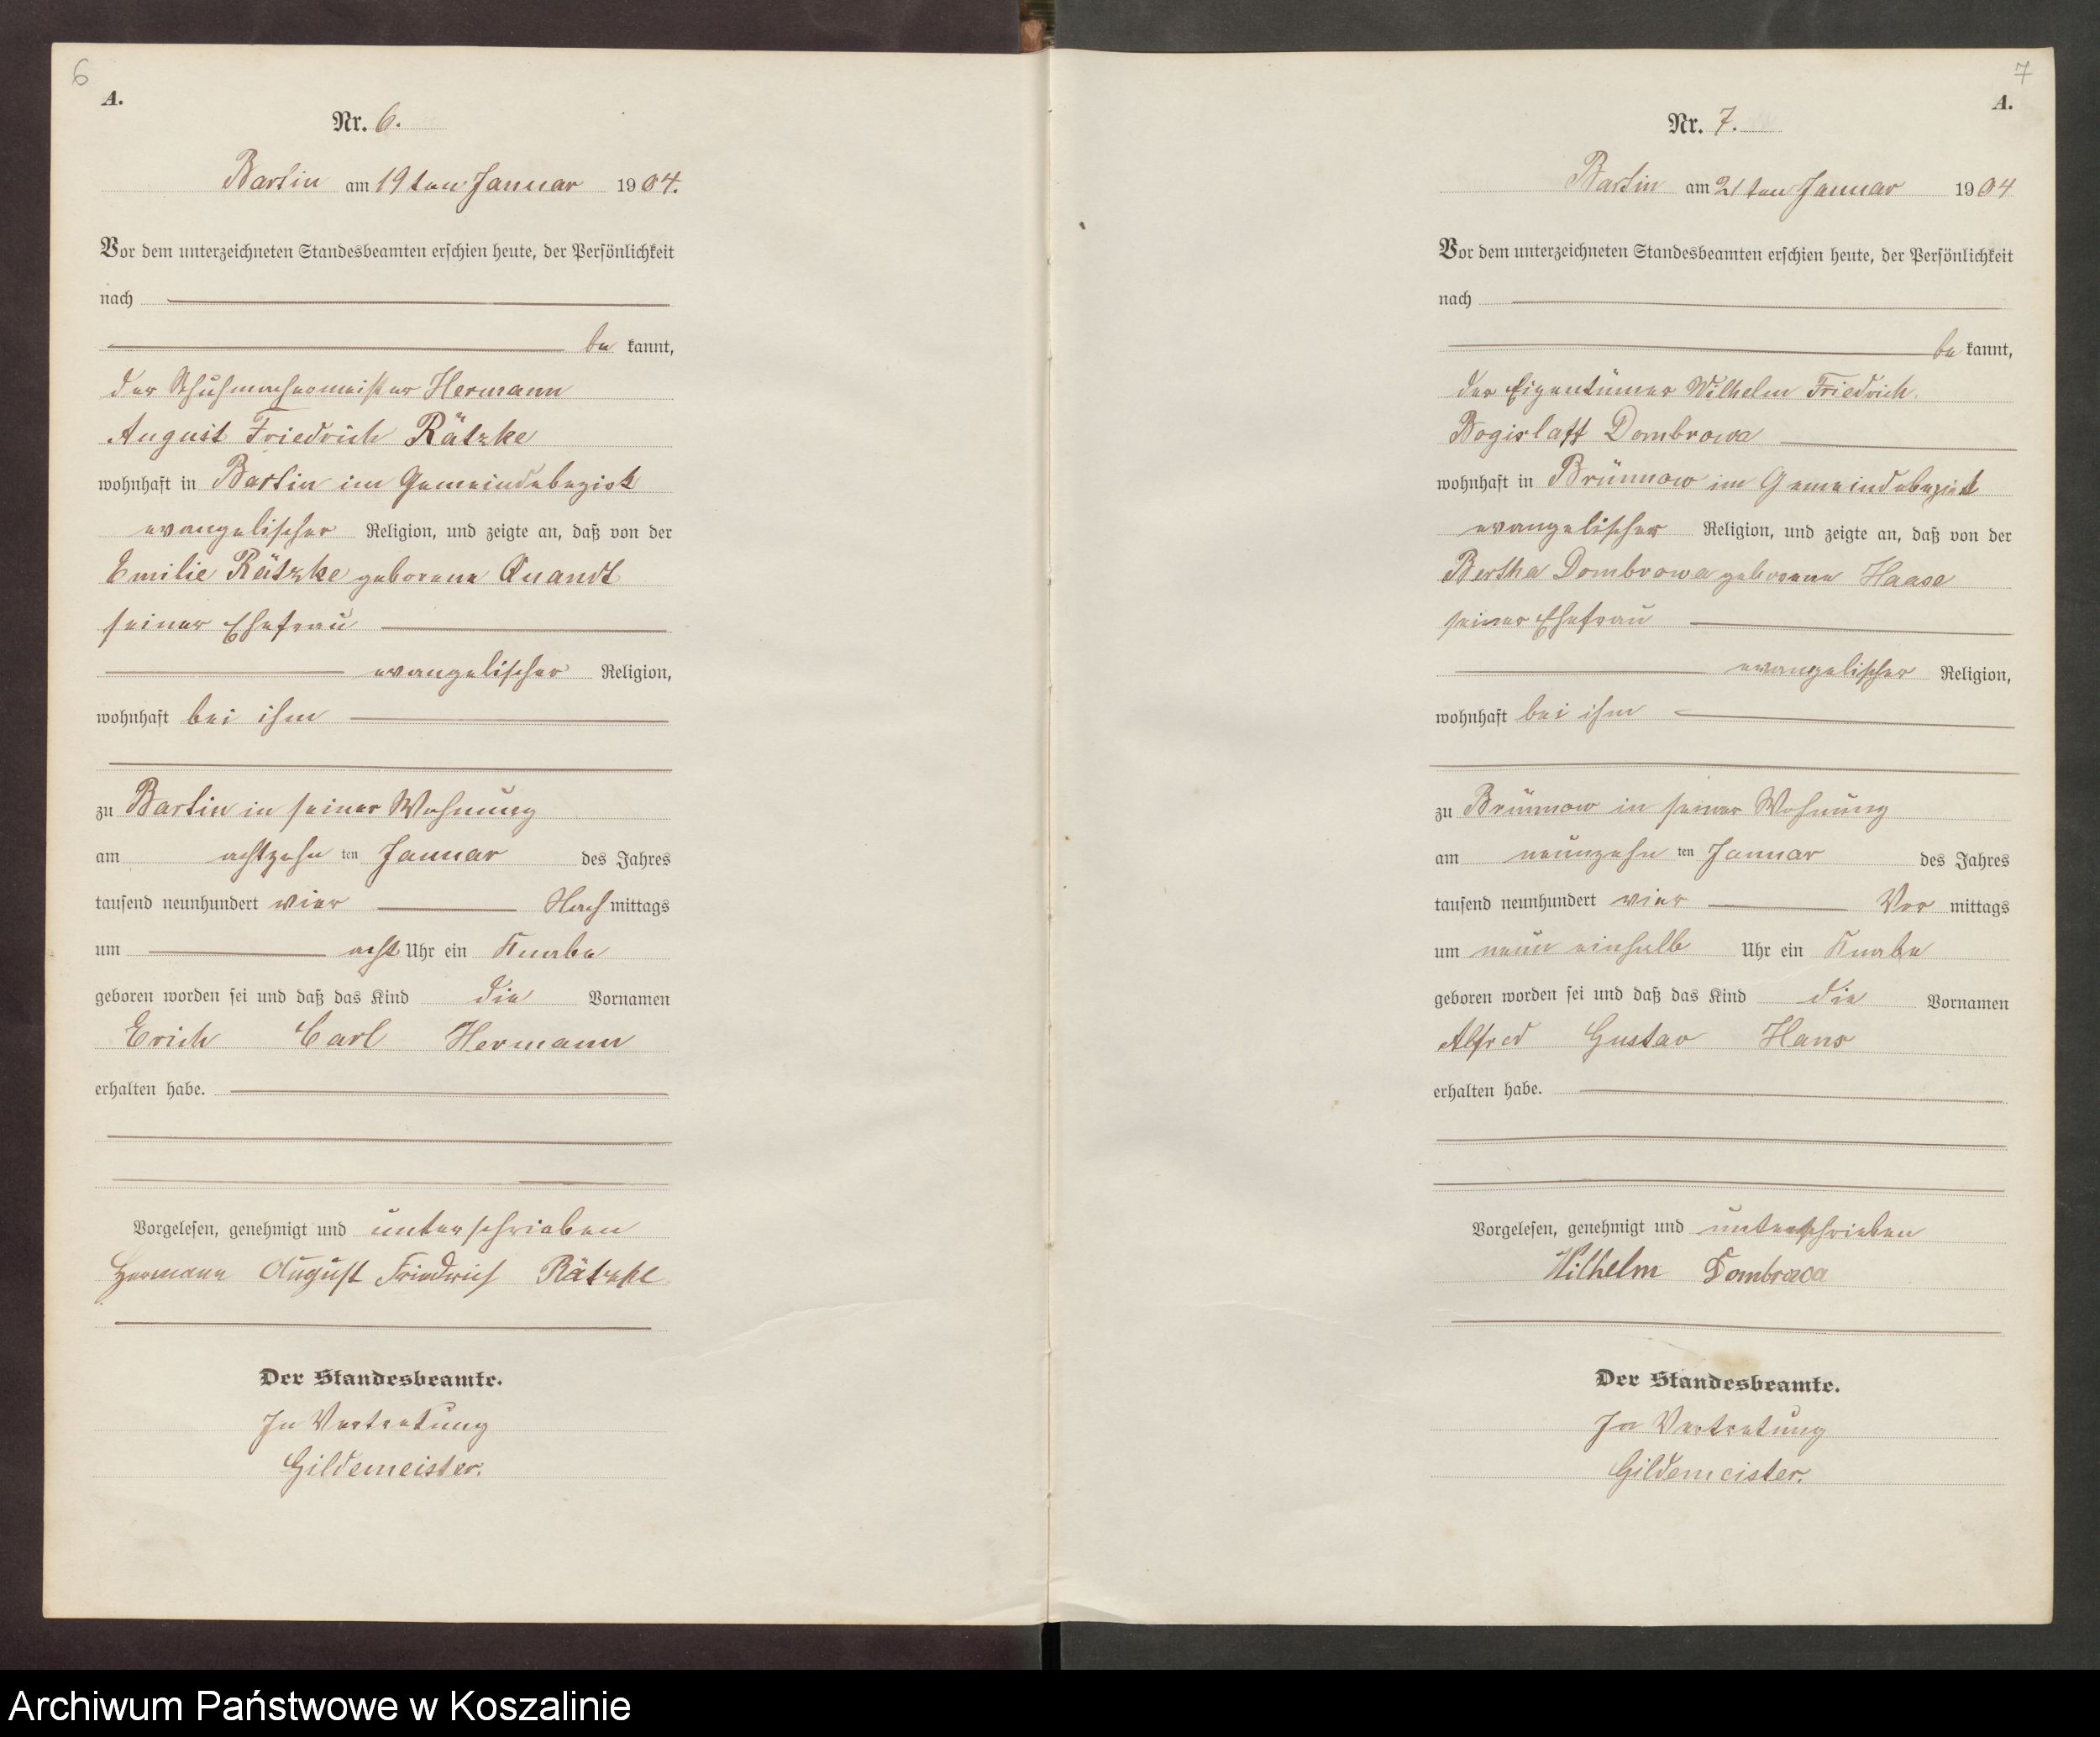 6
A.
Nr. 6.
Bartin am 19ten Januar 1904.
Vor dem unterzeichneten Standesbeamten erschien heute, der Persönlichkeit
nach
be kannt,
der Schuhmachermeister Hermann
August Friedrich Rätzke
wohnhaft in Bartin im Gemeindebezirk
evangelischer Religion, und zeigte an, daß von der
Emilie Rätzke geborene Quandt
seiner Ehefrau
evangelischer Religion,
wohnhaft bei ihm
zu Bartin in seiner Wohnung
am achtzehn ten Januar des Jahres
tausend neunhundert vier Nach mittags
um acht Uhr ein Knabe
geboren worden sei und daß das Kind die Vornamen
Erich Carl Hermann
erhalten habe.
Vorgelesen, genehmigt und unterschrieben
Hermann August Friedrich Rätzke
Der Standesbeamte.
In Vertretung
Gildemeister.
7
A.
Nr. 7.
Bartin am 21ten Januar 1904
Vor dem unterzeichneten Standesbeamten erschien heute, der Persönlichkeit
nach
be kannt,
der Eigentümer Wilhelm Friedrich
Bogislaff Dombrowa
wohnhaft in Brünnow im Gemeindebezirk
evangelischer Religion, und zeigte an, daß von der
Bertha Dombrowa geborene Haase
seiner Ehefrau
evangelischer Religion,
wohnhaft bei ihm
zu Brünnow in seiner Wohnung
am neunzehn ten Januar des Jahres
tausend neunhundert vier Vor mittags
um neun einhalb Uhr ein Knabe
geboren worden sei und daß das Kind die Vornamen
Alfred Gustav Hans
erhalten habe.
Vorgelesen, genehmigt und unterschrieben
Wilhelm Dombrowa
Der Standesbeamte.
In Vertretung
Gildemeister.
Archiwum Państwowe w Koszalinie